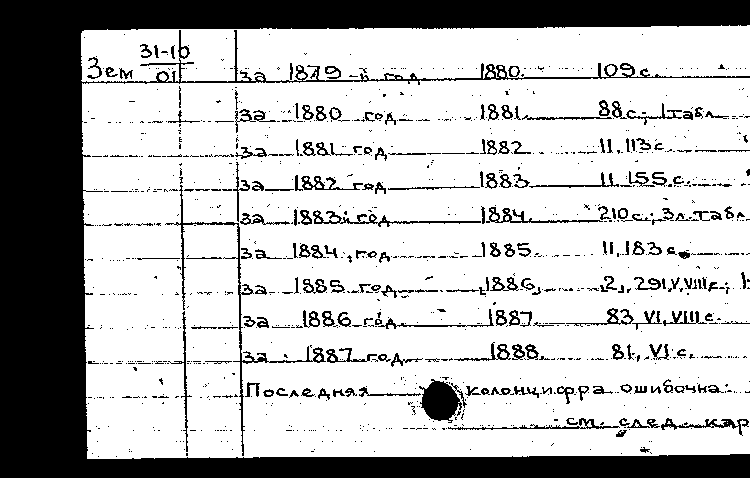 Зем 31-10/01 за 1879-й год 1880. 109 с.
за 1880 год 1881. 88 с.; 1 табл
за 1881 год 1882 11, 113 с
за 1882 год 1883 11 155 с.
за 1883й год 1884. 210 с.; 3 л. табл
за 1884 год 1885. 11, 183 с.
за 1885 год 1886, 2, 291, V, VIII с.;
за 1886 год 1887. 83, VI, VIII с.
за 1887 год 1888. 81, VI с.
Последняя колонцифра ошибочна.
см. след. кар